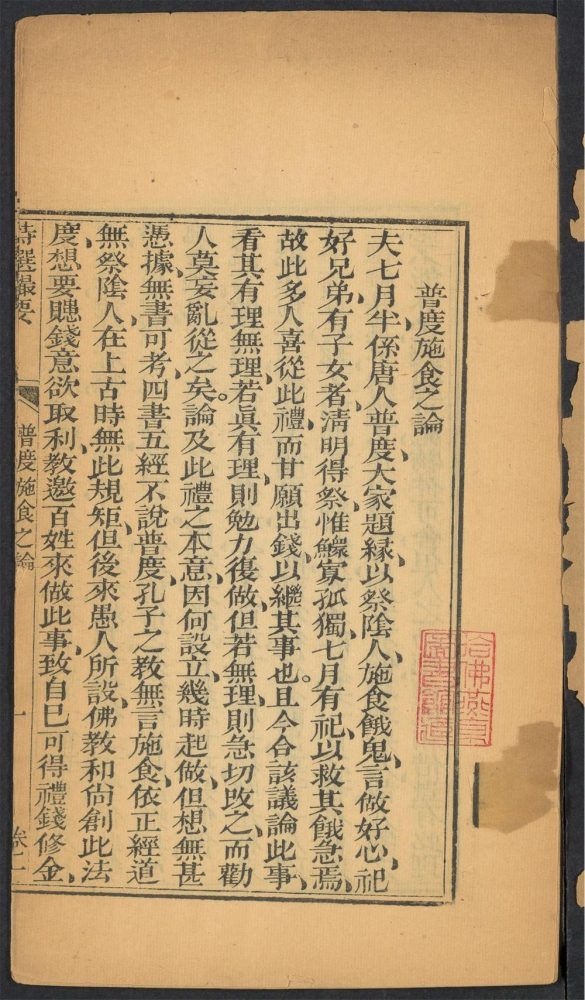 普度施食之論
夫七月半係唐人普度、大家題緣、以祭陰人、施食餓鬼、言做好心、祀
好兄弟、有子女者、清明得祭、惟鰥寡孤獨、七月有祀、以救其餓急焉、
故此多人喜從此禮、而甘願出錢、以繼其事也。且今合該議論此事、
看其有理無理、若眞有理、則勉力復做、但若無理、則急切改之、而勸
人莫妄亂從之矣。論及此禮之本意、因何設立、幾時起做、但想無甚
憑據、無書可考、四書五經不說普度、孔子之教無言施食、依正經道
無祭陰人、在上古時無此規矩、但後來愚人所設、佛教和尚創此法
度、想要賺錢、意欲取利、教邀百姓來做此事、致自己可得禮錢修金、
特選撮要
普度施食之論
一
卷二
哈佛燕京
圖書館